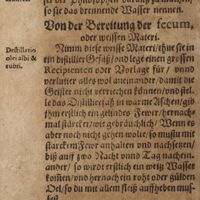 so sie das brennende Wasser nennen.
Von der Bereitung der fecum,
oder weissen Materi.
Destillatio
olei albi &
rubri.
Nimm diese weisse Materi / thue sie in
ein distillier Gefäß / vnd lege einen grossen
Recipienten oder Vorlag für / vnnd
verlutire alles wol aneinander / damit die
Geister nicht verriechen können / vnd stel-
le das Distillierfaß in warme Aschen / gib
ihm erstlich ein gelindes Fewer / hernach
mal stärcker / wie gebräuchlich / Wenn es
aber noch nicht gehen wolte / so mustu mit
starckem Fewr anhalten vnd nachsehen /
biß auff zwo Nacht vnnd Tag nachein-
ander / so wird erstlich ein weiß Wasser
kosten / vnd hernach ein roht oder gülden
Oel / so du mit allem fleiß auffheben mus-